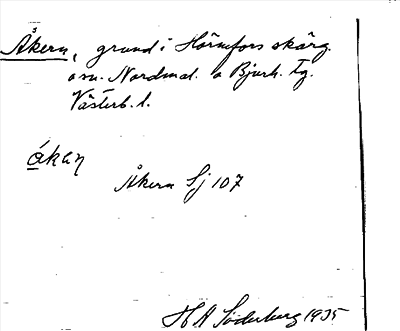 Åkern, grund i Hörnefors skärg.
osv. Nordmal. o Bjurh. tg.
Västerb. l.
åkaṇ
Åkern Sj 107
H A Söderberg 1935